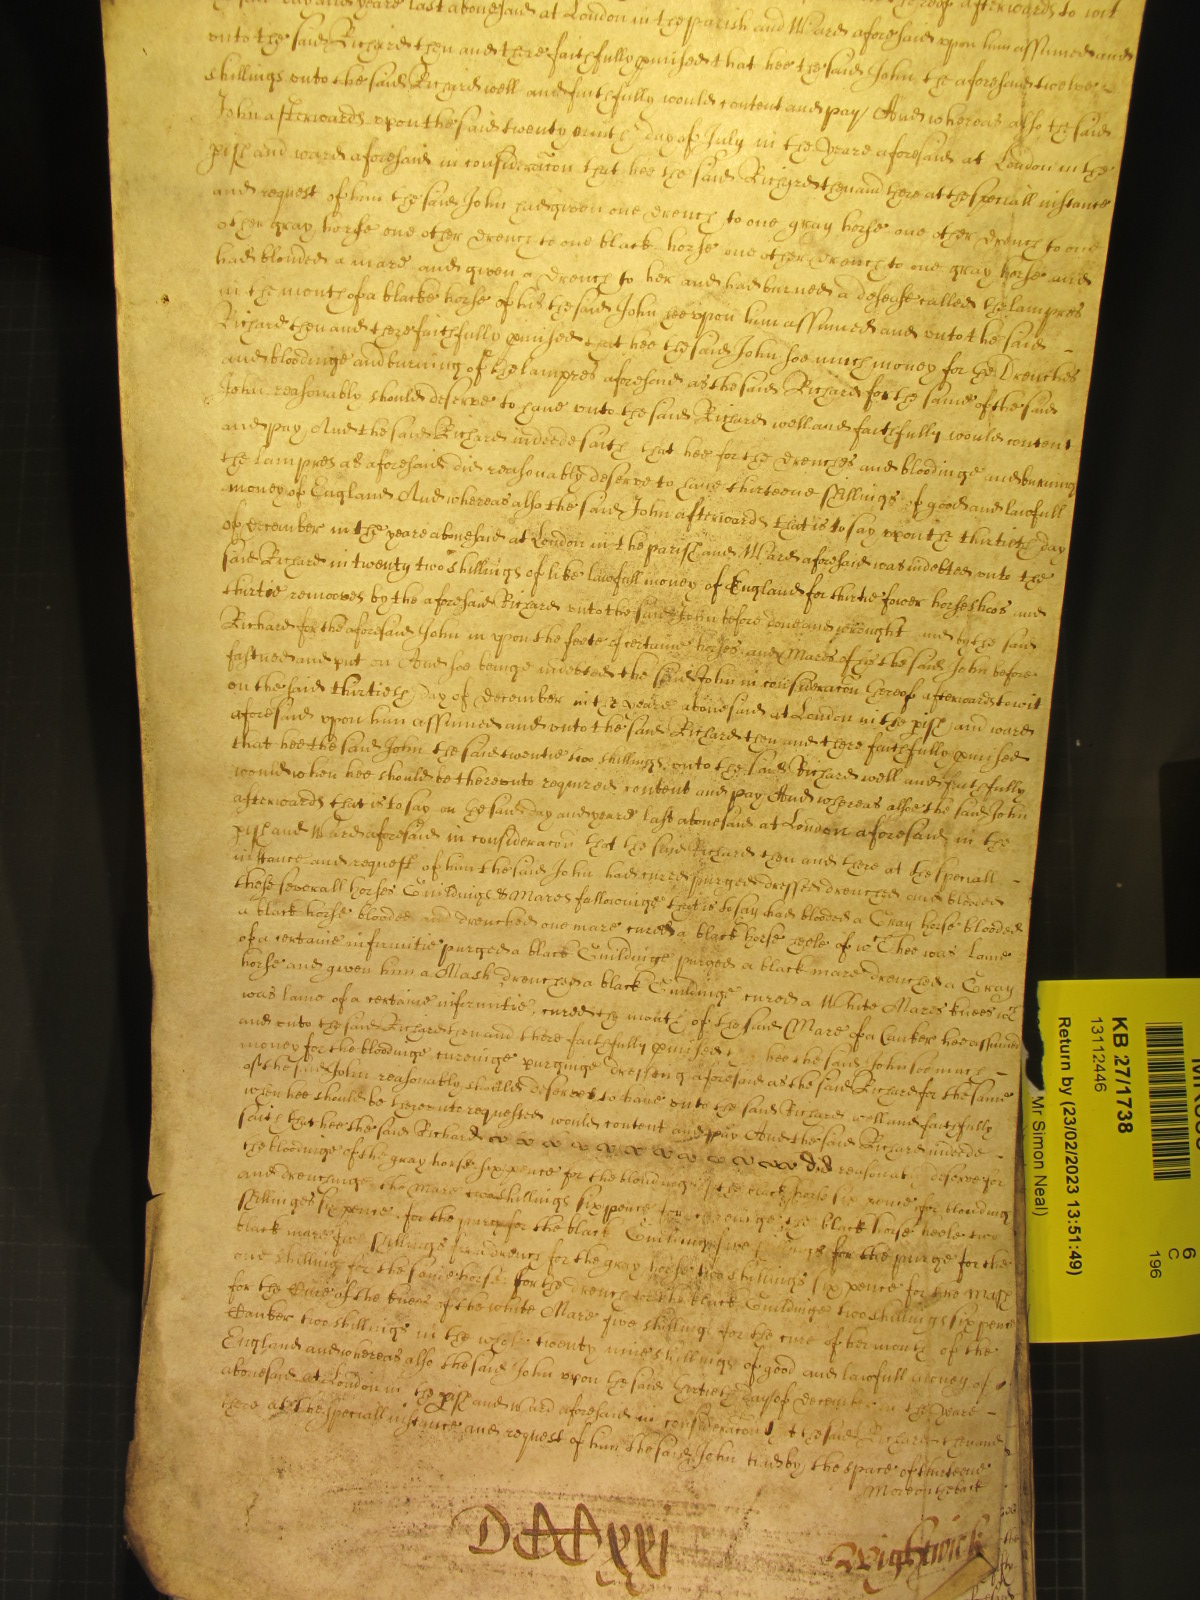 the said day and yeare last abovesaid at London in the parish and Ward aforesaid upon him assumed and
unto the said Richard then and there faithfully pmised that hee the said John the aforesaid twelve
shillings unto the said Richard well and faithfully would content and pay / And whereas also the said
John afterwards upon the said twenty day of July in the yeare aforesaid at London in the
pish and ward aforesaid in consideracon that hee the said Richard then and there at the speciall instance
and request of him the said John had given one drench to one gray horse one other drench to one
other gray horse one other drench to one black horse one other drench to one gray horse and
had blouded a mare and given a drench to her and had burned a desease called the lampres
in the mouth of a blacke horse of his the said John hee upon him assumed and unto the said
Richard then and there faithfully pmised that hee the said John soe much money for the Drenches
and bloodinge and burning of the lampres aforesaid as the said Richard for the same of the said
John reasonably should deserve to have unto the said Richard well and faithfully would content
and pay And the said Richard indeede saith that hee for the drenches and bloodinge and burning
the lampres as aforesaid did reasonably deserve to have thirteene shillings of good and lawfull
money of England And whereas also the said John afterwards that is to say upon the thirtieth day
of December in the yeare abovesaid at London in the parish and Ward aforesaid was indebted unto the
said Richard in twenty two shillings of like lawfull money of England for thirtie fower horseshoes and
thirtie removes by the aforesaid Richard unto the said John before done and wrought and by the said
Richard for the aforesaid John in upon the feete of certaine horses and Mares of his the said John before
fastned and put on And soe beinge indebted the said John in consideracon thereof afterwards to wit
on the said thirtieth day of December in the yeare abovesaid at London in the pish and ward
aforesaid upon him assumed and unto the said Richard then and there faithfully pmised
that hee the said John the said twentie two shillings unto the said Richard well and faithfully
would when hee should be thereunto required content and pay And whereas alsoe the said John
afterwards that is to say on the said day and yeare last abovesaid at London aforesaid in the
pish and Ward aforesaid in consideracon that the said Richard then and there at the speciall
instance and request of him the said John had cured purged dressed drenched and blooded
these severall horses Gueldings & Mares followinge that is to say had blooded a Gray horse blooded
a black horse blooded and drenched one mare cured a black horse heele of wch hee was lame
of a certaine infirmitie purged a black Gueldinge purged a black mare drenched a Gray
horse and given him a Mash drenched a black Gueldinge cured a White Mares knees wch
was lame of a certaine infirmitie, cured the mouth of the said Mare of a Canker hee assumed
and unto the said Richard then and there faithfully pmised hee the said John soe much
money for the bloodinge cureinge purginge dressing aforesaid as the said Richard for the same
of the said John reasonably should deserve to have unto the said Richard well and faithfully
when hee should be thereunto requested would content and pay And the said Richard indeede
saith that hee the said Richard did reasonably deserve for
the bloodinge of the gray horse six pence for the bloudinge of the black horse six pence for blouding
and drenchinge the mare two shillings six pence for cureinge the black horse heele two
shillings six pence for the purge for the black Gueldinge five shillings for the purge for the
black mare five shillings for a drench for the gray horse two shillings six pence for the mash
one shilling for the same horse for the drench for the black Gueldinge two shillings six pence
for the Cure of the knees of the white Mare five shillings for the cure of her mouth of the
Canker two shillings in the whole twenty nine shillings of good and lawfull money of
England and whereas also the said John upon the said thirtieth day of December in the yeare
abovesaid at London in the pish and ward aforesaid in consideracon that the said Richard then and
there at the speciall instance and request of him the said John had by the space of thirteene
More on the back
Wightwick
KB 27/1738
13112446
Return by (23/02/2023 13:51:49)
Mr Simon Neal)
6
C
196